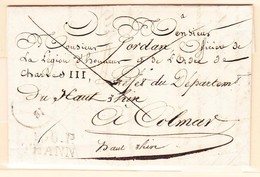 A Monsieur
Monsieur Jordan Officier de
La Légion d'honneur & de l'Ordre de
Charles III,
Préfet du Département
Du Haut Rhin
A Colmar
haut rhin